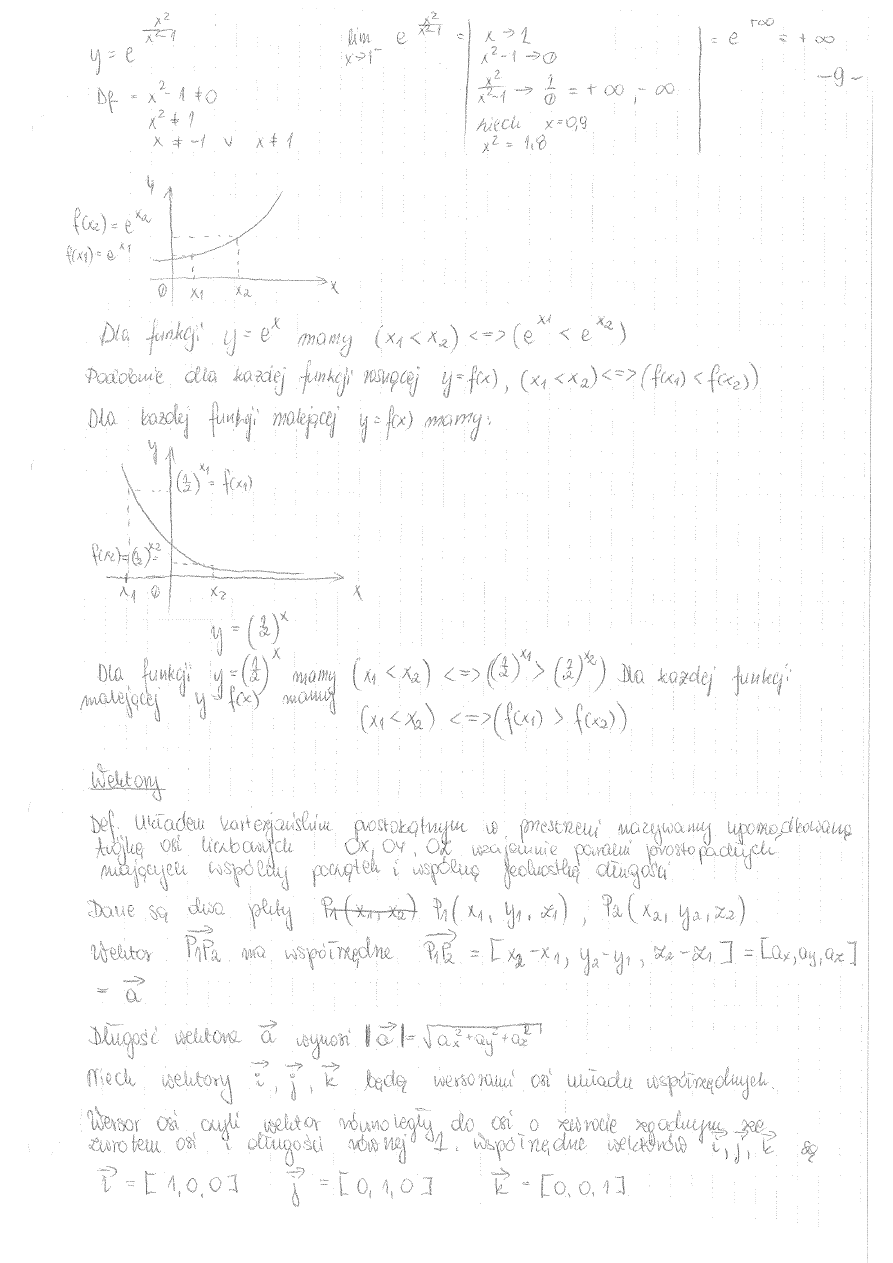 y = e^(x²/(x²-1))
lim x→1⁻ e^(x²/(x²-1)) = | x → 1
x²-1 → 0
x²/(x²-1) → 1/0 = +∞, -∞
niech x = 0,9
x² = 1,8 | = e^(+∞) = +∞
-9-
Df = x²-1 ≠ 0
x² ≠ 1
x ≠ -1 v x ≠ 1
y
f(x2) = e^x2
f(x1) = e^x1
0 x1 x2 x
Dla funkcji y = e^x mamy (x1 < x2) <=> (e^x1 < e^x2)
Podobnie dla każdej funkcji rosnącej y=f(x), (x1 < x2) <=> (f(x1) < f(x2))
Dla każdej funkcji malejącej y=f(x) mamy:
y
(1/2)^x1 = f(x1)
f(x2) = (1/2)^x2
x1 0 x2 x
y = (1/2)^x
Dla funkcji y = (1/2)^x mamy (x1 < x2) <=> ((1/2)^x1 > (1/2)^x2) Dla każdej funkcji
malejącej y = f(x) mamy
(x1 < x2) <=> (f(x1) > f(x2))
Wektory
Def. Układem kartezjańskim prostokątnym w przestrzeni nazywamy uporządkowaną
trójkę osi liczbowych Ox, Oy, Oz wzajemnie parami prostopadłych
mających wspólny początek i wspólną jednostkę długości
Dane są dwa pkty P1(x1, x2) P1(x1, y1, z1), P2(x2, y2, z2)
Wektor P1P2 ma współrzędne P1P2 = [x2-x1, y2-y1, z2-z1] = [ax, ay, az]
= a
Długość wektora a wynosi |a| = √(ax²+ay²+az²)
Niech wektory i, j, k będą wersorami osi układu współrzędnych.
Wersor osi czyli wektor równoległy do osi o zwrocie zgodnym ze
zwrotem osi i długości równej 1. współrzędne wektorów i, j, k są
i = [1,0,0] j = [0,1,0] k = [0,0,1]